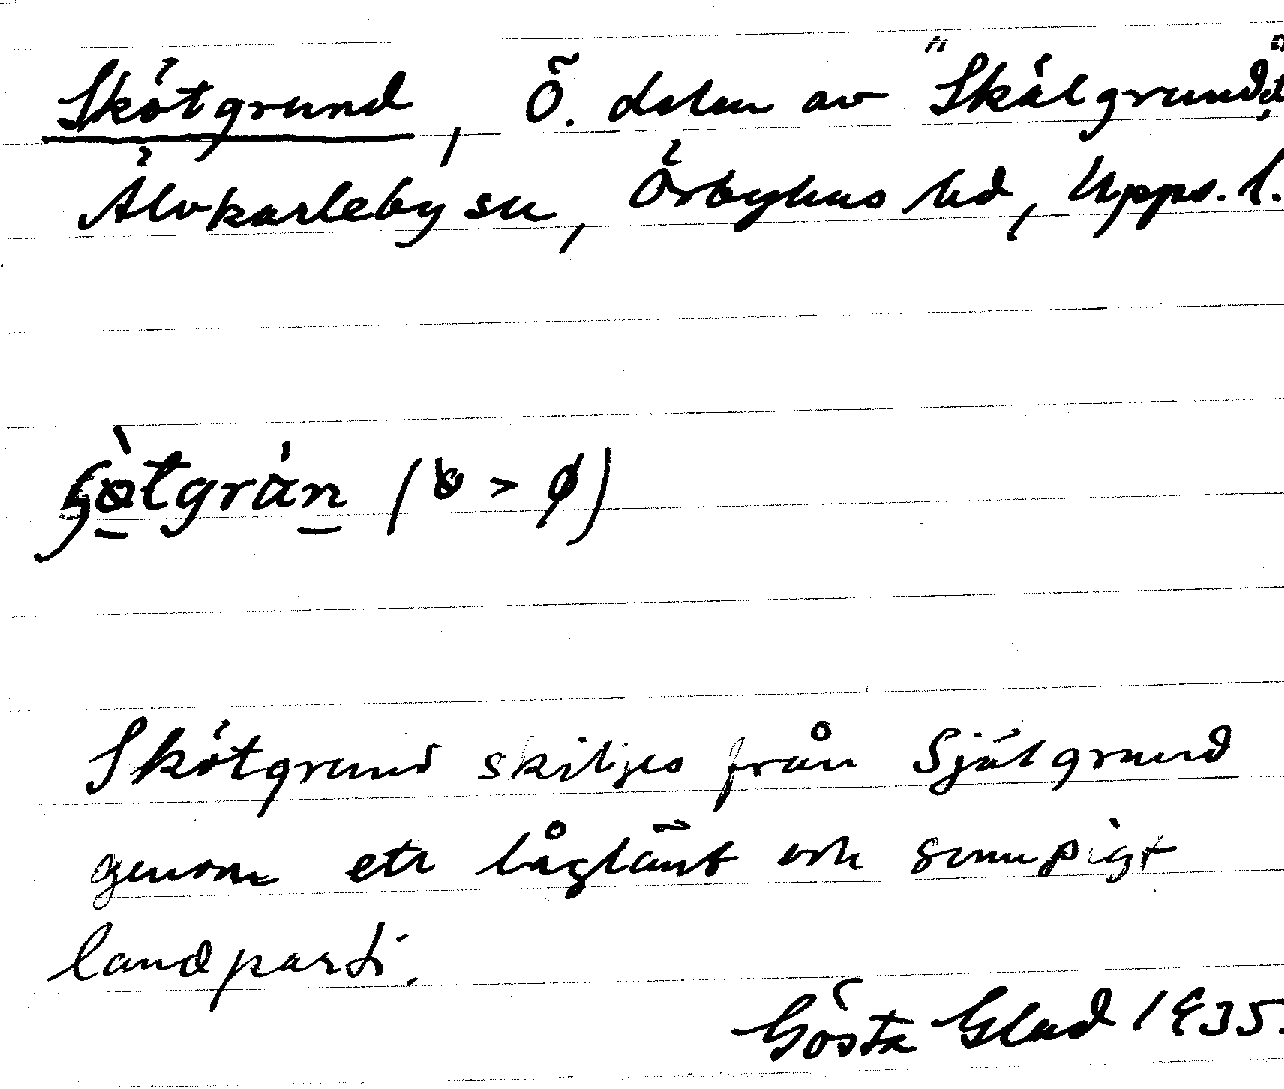 Skötgrund, Ö. delen av "Skälgrundet"
Älvkarleby sn, Örbyhus hd, Upps. l.
Skötgrund skiljes från Själgrund
genom ett låglänt och sumpigt
landparti.
Gösta Glad 1935.